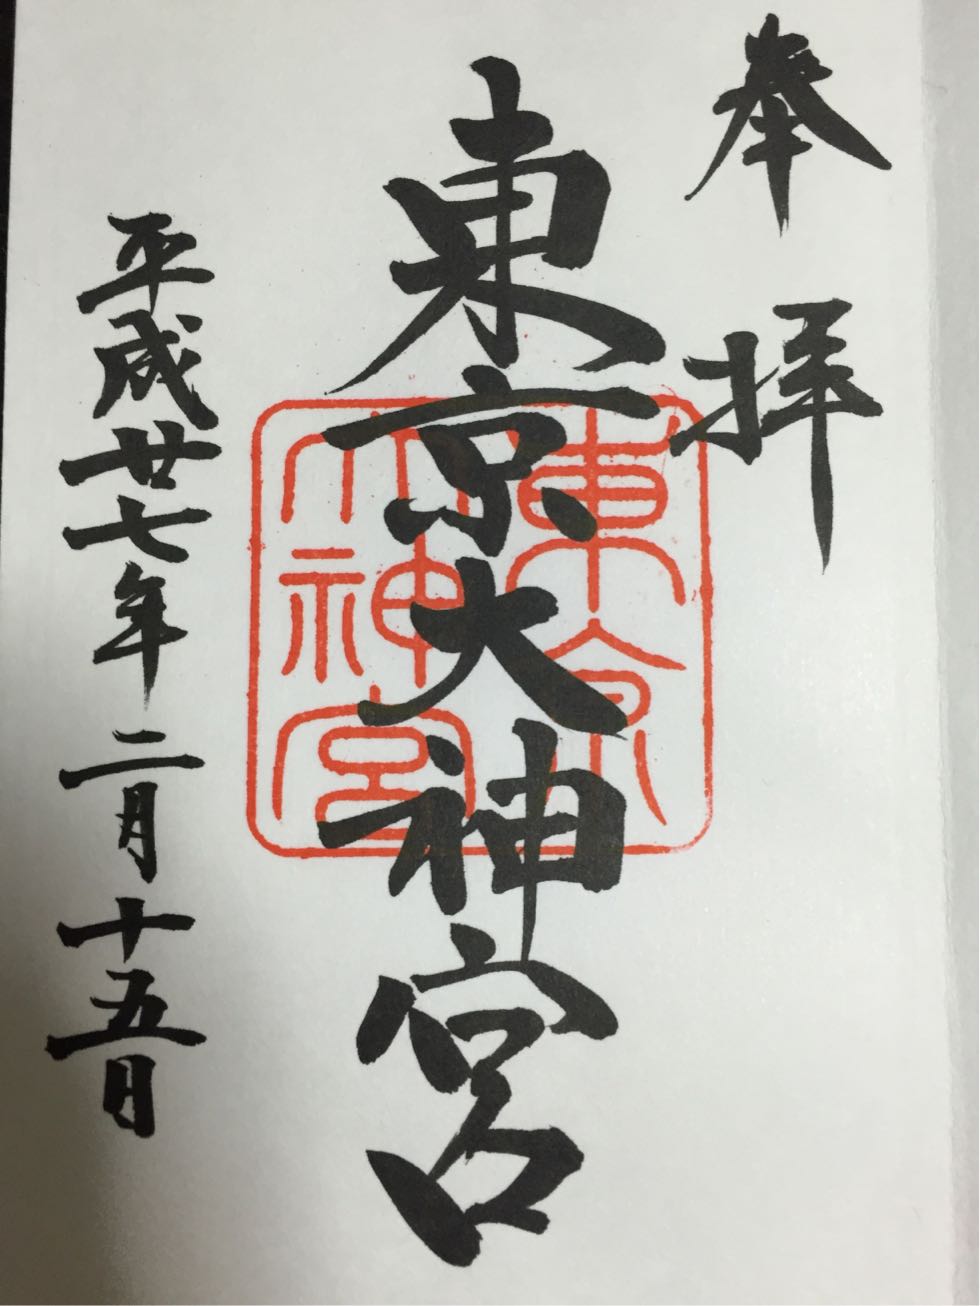 奉拝
東京大神宮
東京
大神宮
平成廿七年二月十五日